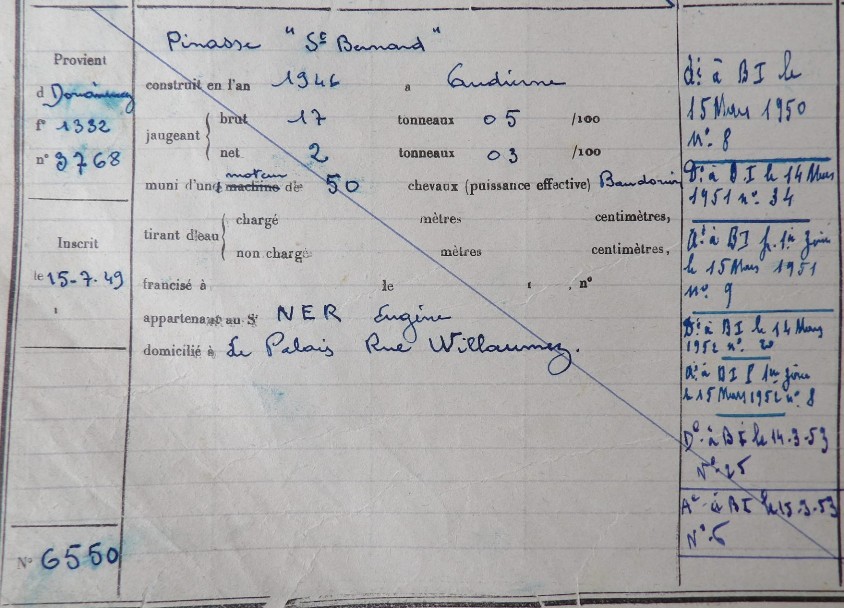 Provient
d Douarnenez
f° 1332
n° 3768
Inscrit
le 15-7-49
N° 6550
Pinasse "St Bernard"
construit en l'an 1946 a Audierne
jaugeant { brut 17 tonneaux 05 /100
net 2 tonneaux 03 /100
moteur
muni d'une machine de 50 chevaux (puissance effective) Baudouin
tirant d'eau { chargé mètres centimètres,
non chargé mètres centimètres,
francisé à le , n°
appartenant au Sr NER Eugène
domicilié à Le Palais Rue Willaumez.
à BI le
15 Mars 1950
n° 8
Dt à BI le 14 Mars
1951 n° 34
At à BI
le 15 Mars 1951
n° 9
Dt à BI le 14 Mars
1952 n° 20
At à BI
le 15 Mars 1952 n° 8
Dt à BI le 14.3.53
N° 25
At à BI le 15.3.53
N° 6